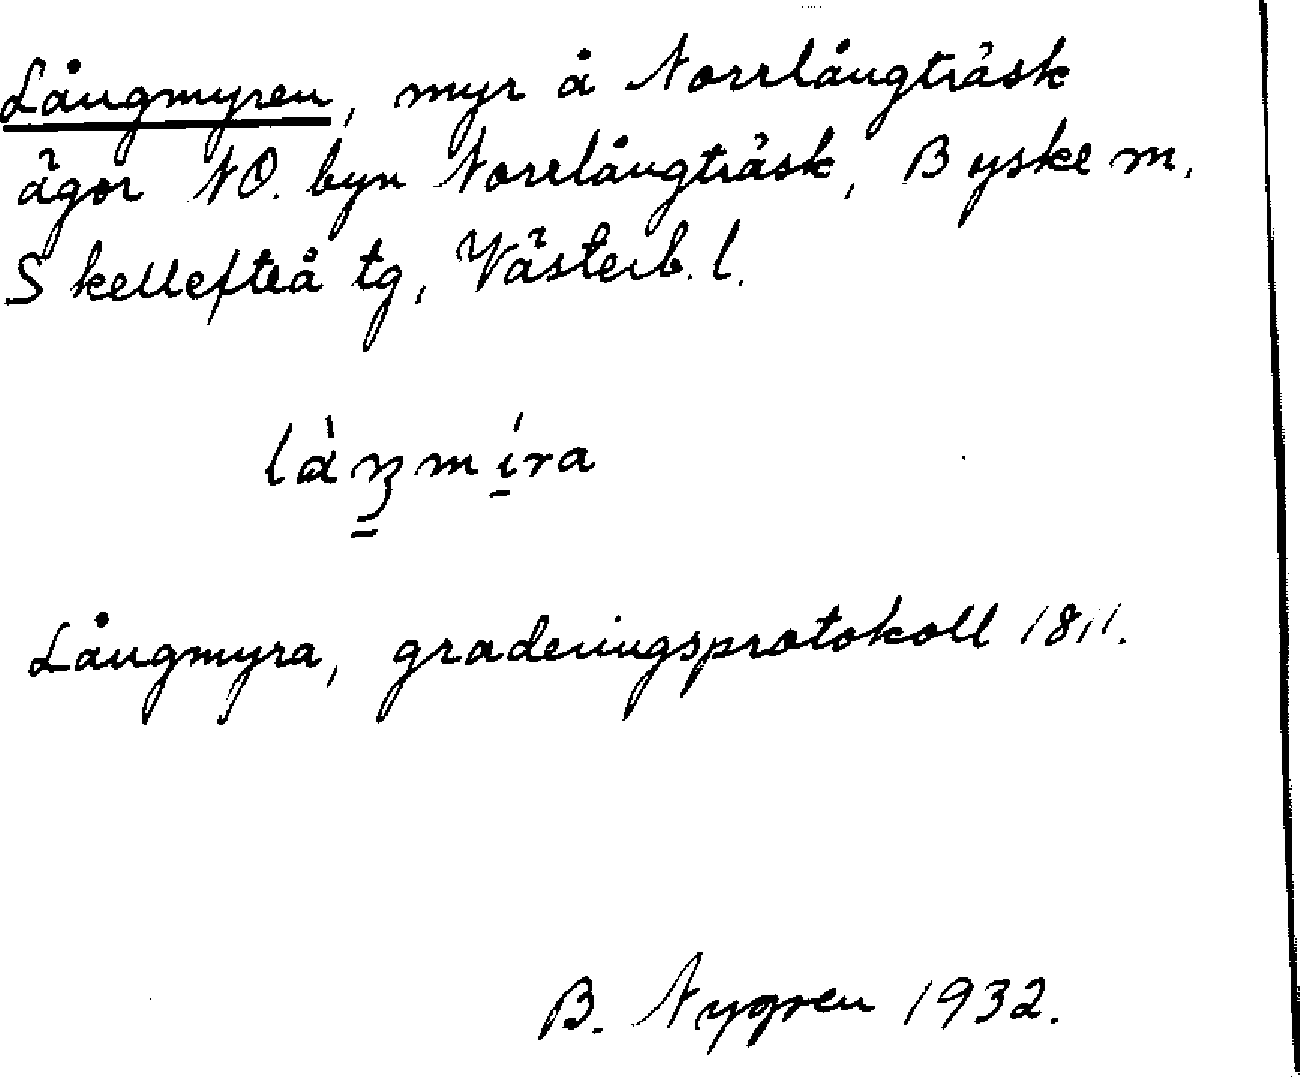 Långmyren, myr å Norrlångträsk
ägor NO. byn Norrlångträsk, Byske m.
Skellefteå tg, Västerb. l.
Långmyra, graderingsprotokoll 1811.
B. Nygren 1932.